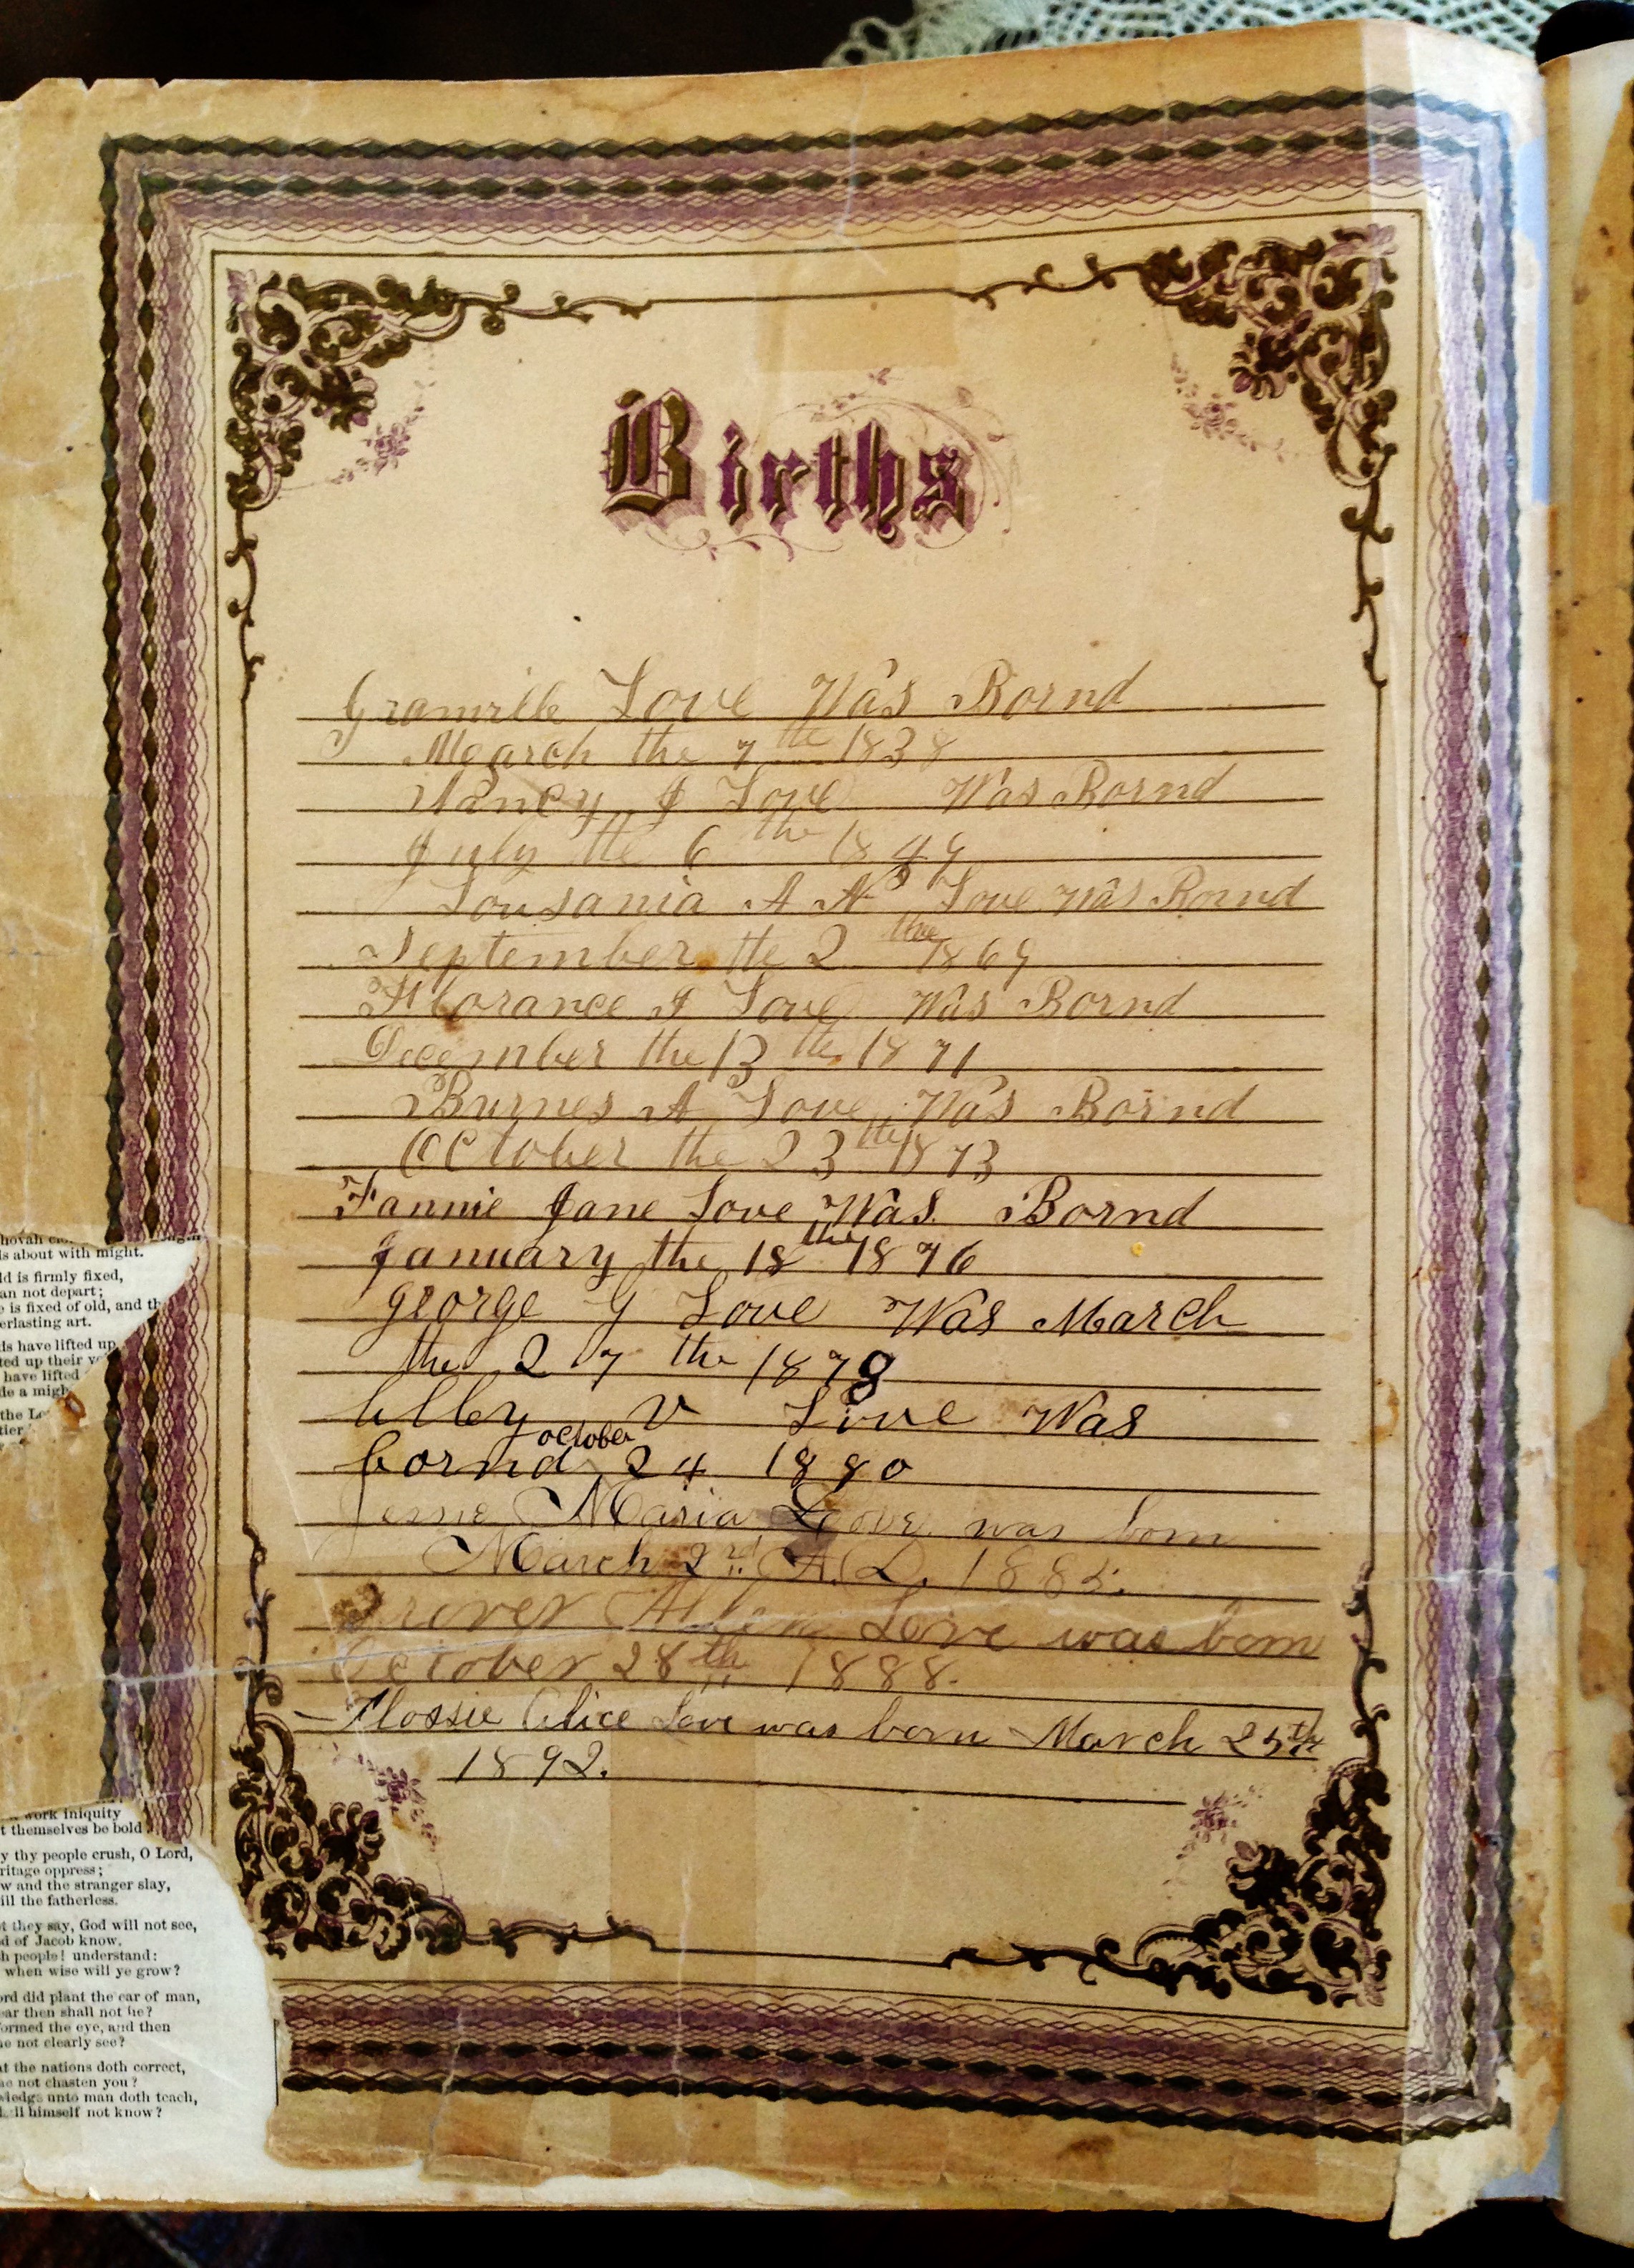 Births
Granville Love Was Bornd
March the 7 the 1838
Nancy J Love Was Bornd
July the 6 the 1849
Lousania A N Love Was Bornd
September the 2 the 1869
Florance I Love Was Bornd
December the 13 the 1871
Burnes A Love Was Bornd
October the 23 the 1873
Fannie Jane Love Was Bornd
January the 18 the 1876
George G Love Was March
the 27 the 1878
V Love Was
bornd october 24 1880
Maria Love was born
March 2nd A.D. 1885.
Grover Love was born
October 28th 1888.
Flossie Alice Love was born March 25th
1892.
s about with might.
ld is firmly fixed,
an not depart;
is fixed of old, and th
erlasting art.
ds have lifted up
ted up their
have lifted
de a migh
the Lo
tier
work iniquity
t themselves be bold
y thy people crush, O Lord,
ritage oppress;
w and the stranger slay,
ill the fatherless.
t they say, God will not see,
d of Jacob know.
h people! understand:
when wise will ye grow?
ord did plant the ear of man,
ear then shall not he?
formed the eye, and then
e not clearly see?
at the nations doth correct,
e not chasten you?
wledge unto man doth teach,
ll himself not know?